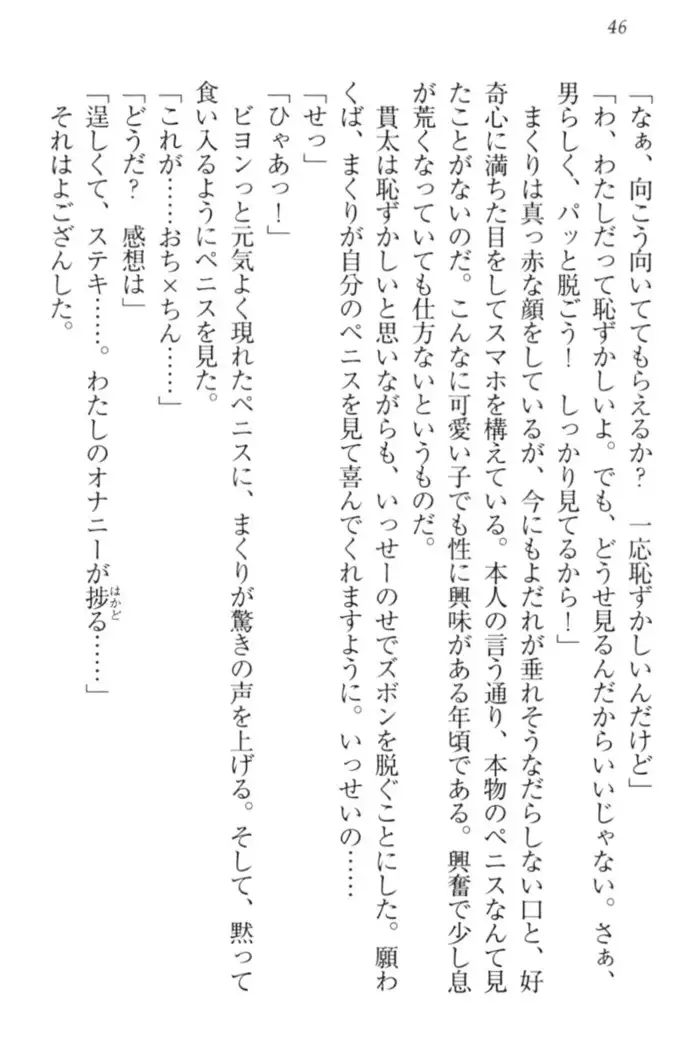 46
「なぁ、向こう向いててもらえるか？　一応恥ずかしいんだけど」
「わ、わたしだって恥ずかしいよ。でも、どうせ見るんだからいいじゃない。さぁ、
男らしく、パッと脱ごう！　しっかり見てるから！」
　まくりは真っ赤な顔をしているが、今にもよだれが垂れそうなだらしない口と、好
奇心に満ちた目をしてスマホを構えている。本人の言う通り、本物のペニスなんて見
たことがないのだ。こんなに可愛い子でも性に興味がある年頃である。興奮で少し息
が荒くなっていても仕方ないというものだ。
　貫太は恥ずかしいと思いながらも、いっせーのせでズボンを脱ぐことにした。願わ
くば、まくりが自分のペニスを見て喜んでくれますように。いっせいの……
「せっ」
「ひゃあっ！」
　ビヨンっと元気よく現れたペニスに、まくりが驚きの声を上げる。そして、黙って
食い入るようにペニスを見た。
「これが……おち×ちん……」
「どうだ？　感想は」
「逞しくて、ステキ……。わたしのオナニーが捗る……」
はかど
　それはよござんした。